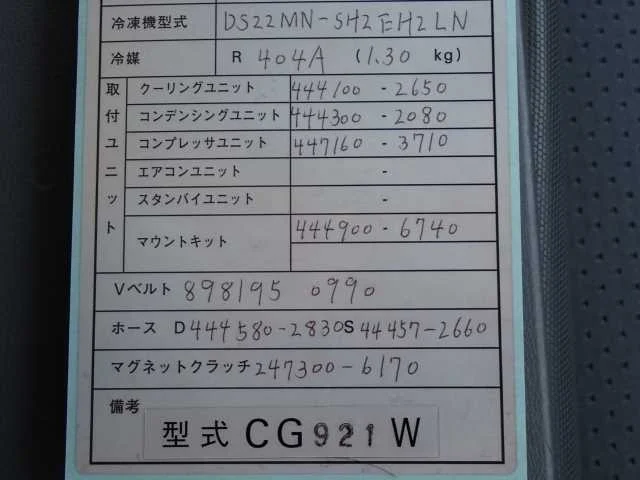 冷凍機型式 DS22MN-SH2EH2LN
冷媒 R 404A (1.30 kg)
取付ユニット
クーリングユニット 444100-2650
コンデンシングユニット 444300-2080
コンプレッサユニット 447160-3710
エアコンユニット -
スタンバイユニット -
マウントキット 444900-6740
Vベルト 898195 0990
ホース D444580-2830S 44457-2660
マグネットクラッチ 247300-6170
備考
型式 CG921W